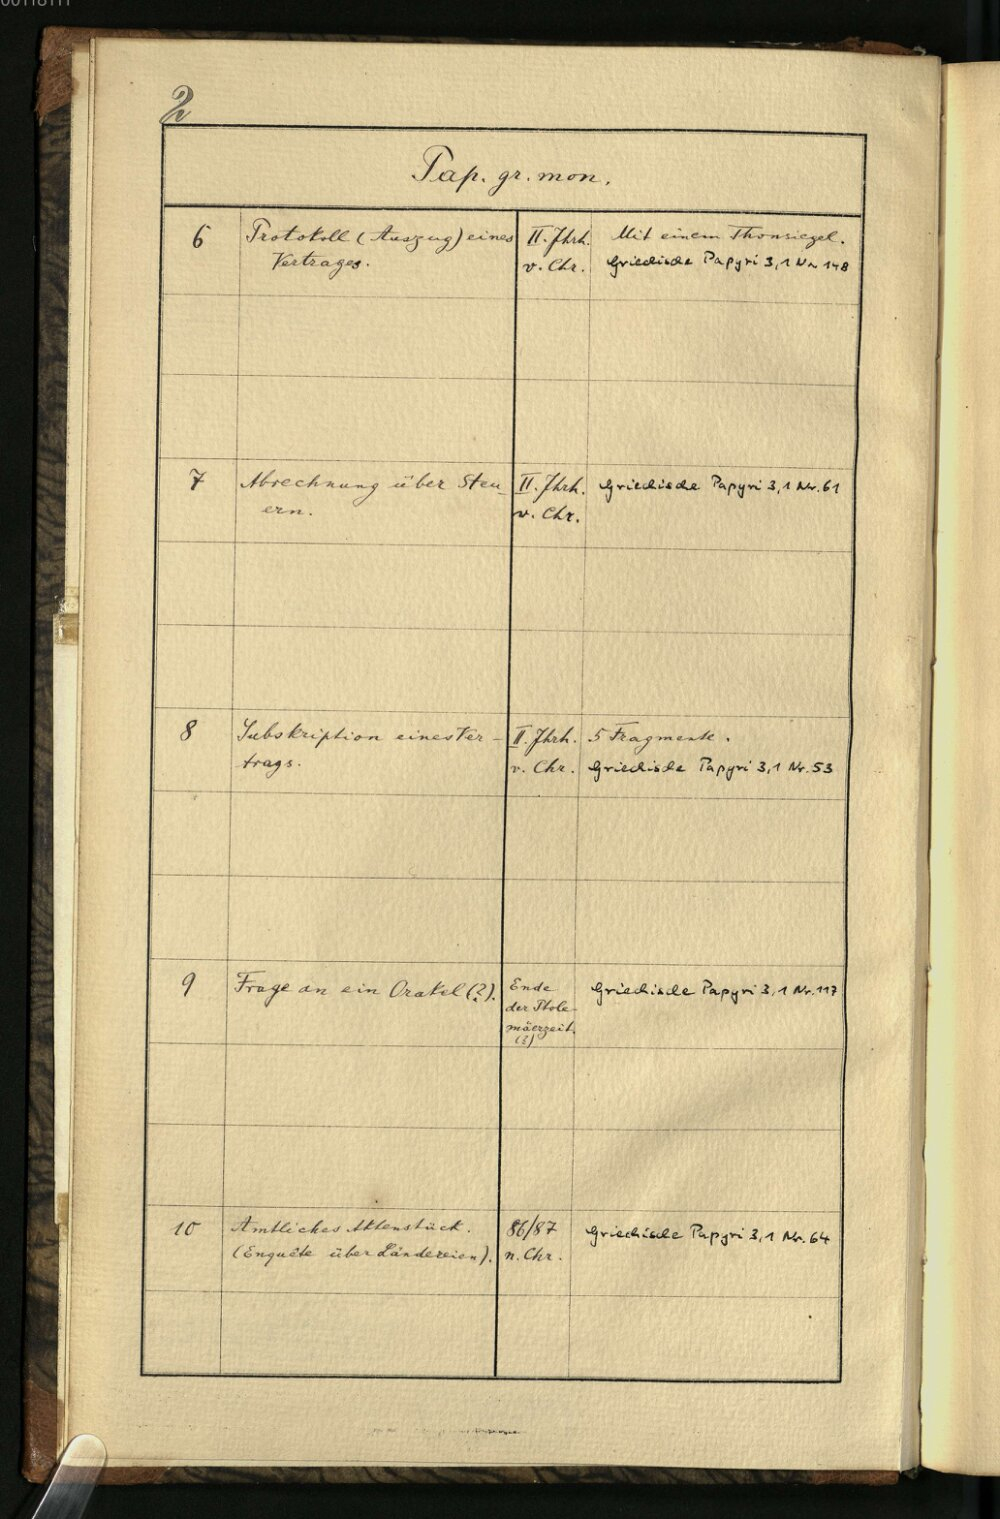 2
Pap. gr. mon.
6 Protokoll (Auszug) eines II. Jhrh. Mit einem Thonsiegel.
Vertrages. v. Chr. Griechische Papyri 3,1 Nr. 148
7 Abrechnung über Steu- II. Jhrh. Griechische Papyri 3,1 Nr. 61
ern. v. Chr.
8 Subskription eines Ver- II. Jhrh. 5 Fragmente.
trags. v. Chr. Griechische Papyri 3,1 Nr. 53
9 Frage an ein Orakel (?). Ende Griechische Papyri 3,1 Nr. 117
der Ptole-
mäerzeit.
(?)
10 Amtliches Aktenstück. 86/87 Griechische Papyri 3,1 Nr. 64
(Enquête über Ländereien). n. Chr.